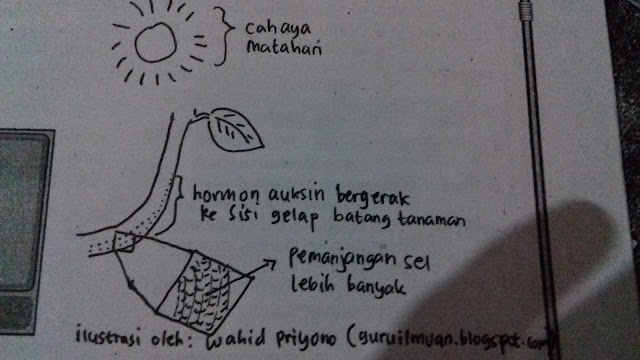 cahaya
matahari
hormon auksin bergerak
ke sisi gelap batang tanaman
Pemanjangan sel
lebih banyak
ilustrasi oleh: Wahid Priyono (guruilmuan.blogspot.com)